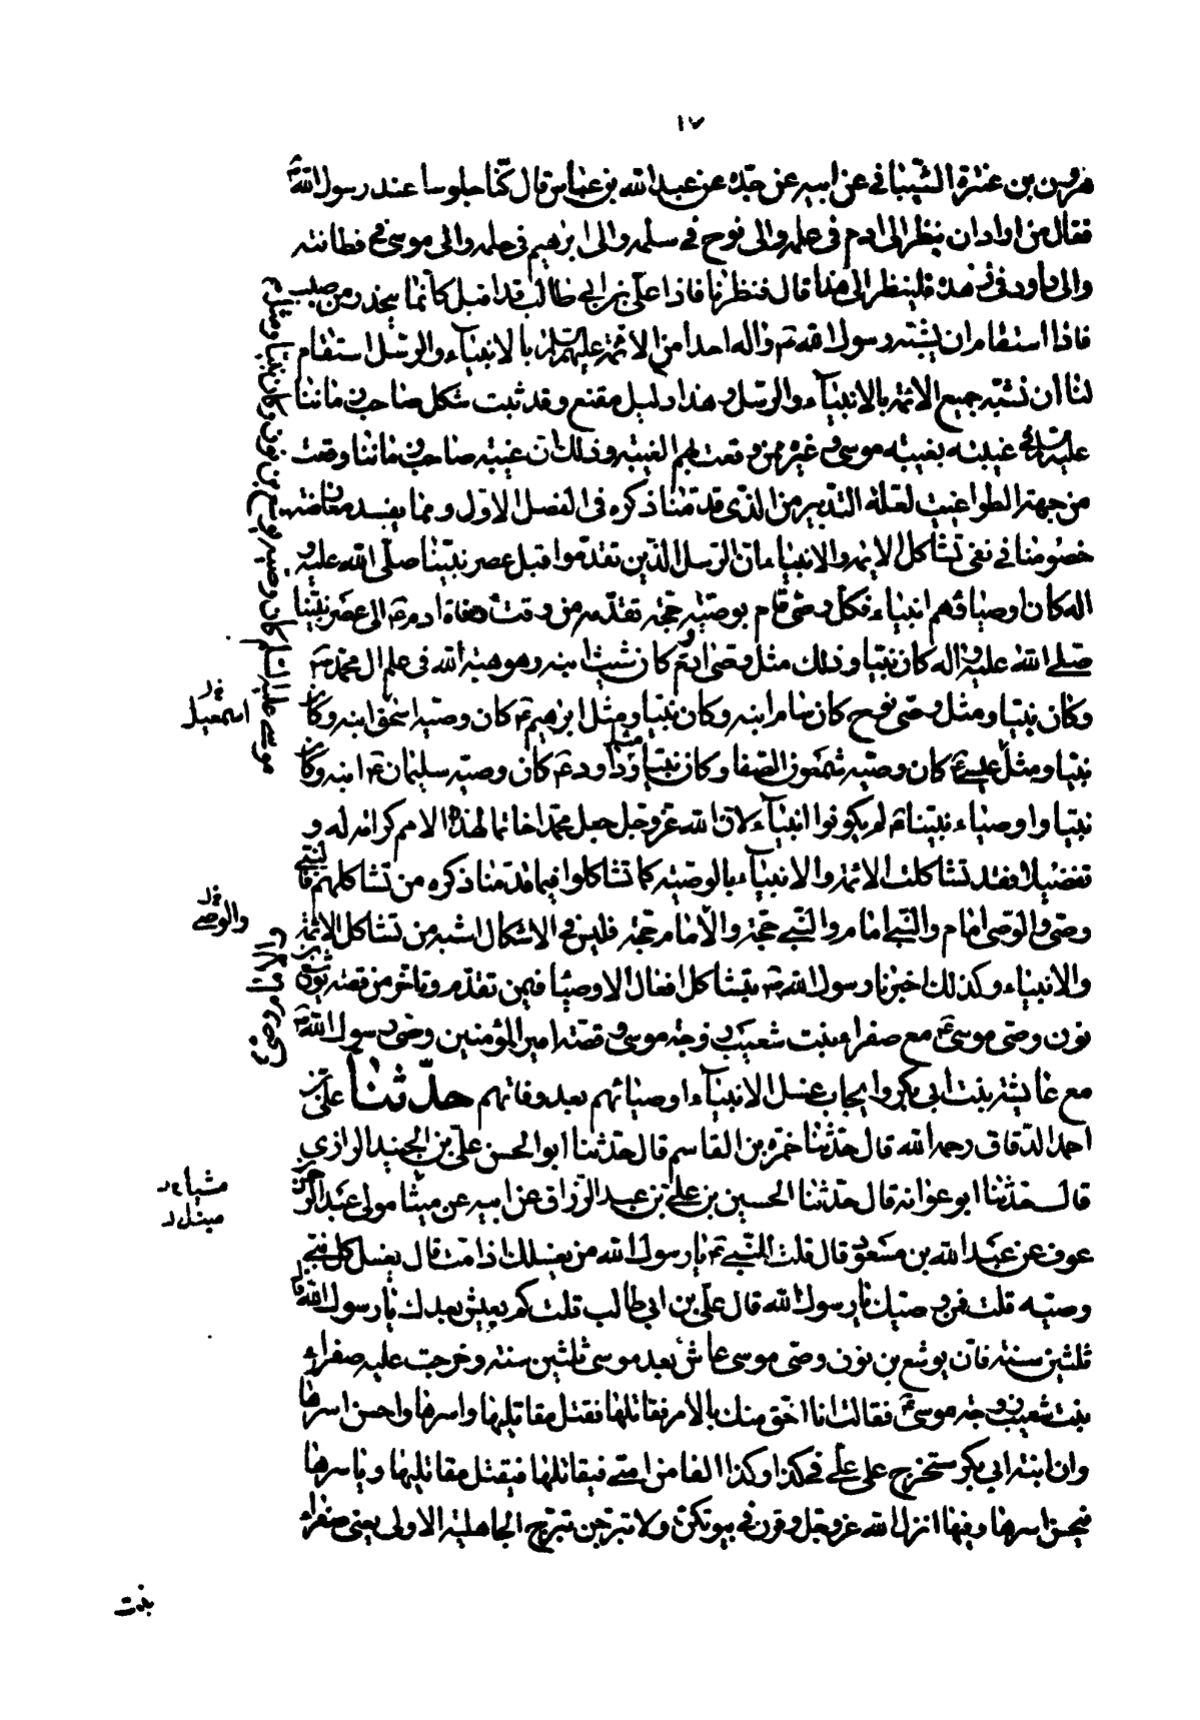 ١٧
هرون بن عنترة الشيباني عن ابيه عن جده عن عبد الله بن عباس قال كنا جلوسا عند رسول الله ص
فقال من اراد ان ينظر الى ادم في علمه والى نوح في سلمه والى ابرهيم في حلمه والى موسى في فطانته
والى داود في زهده فلينظر الى هذا قال فنظرنا فاذا علي بن ابي طالب قد اقبل كانما ينحدر من صبب
فاذا استقام ان يشبه رسول الله ص واله احدا من الائمة عليهم السلم بالانبياء والرسل استقام
لنا ان نشبه جميع الائمة بالانبياء والرسل وهذا دليل مقنع وقد ثبت شكل صاحب زماننا
عليه السلام في غيبته بغيبة موسى و غيره ممن وقعت بهم الغيبة وذلك ان غيبة صاحب زماننا وقعت
من جهة الطواغيت لعلة التدبير من الذي قدمنا ذكره في الفصل الاول ومما يفسد معارضة
خصومنا في نفي تشاكل الائمة والانبياء ان الرسل الذين تقدموا قبل عصر نبينا صلى الله عليه و
اله كان اوصياؤهم انبياء فكل وصي قام بوصية حجة تقدمه من وقت وفاة ادم ع الى عصر نبينا
صلى الله عليه واله كان نبيا وذلك مثل وصي ادم ع كان شيث ابنه وهو هبة الله في علم ال محمد ص
وكان نبيا ومثل وصي نوح كان سام ابنه وكان نبيا ومثل ابرهيم ع كان وصيه اسحق ابنه وكان
نبيا ومثل عيسى ع كان وصيه شمعون الصفا وكان نبيا و مثل داود ع كان وصيه سليمان ع ابنه وكان
نبيا واوصياء نبينا ع لم يكونوا انبياء لان الله عز وجل جعل محمدا خاتما لهذه الامم كرامة له و
تفضيلا فقد تشاكلت الائمة والانبياء بالوصية كما تشاكلوا فيما قدمنا ذكره من تشاكلهم فالنبي
وصي والوصي امام والنبي امام والنبي حجة والامام حجة فليس في الاشكال اشبه من تشاكل الائمة
والانبياء وكذلك اخبرنا رسول الله ص بتشاكل افعال الاوصياء فيمن تقدم وتاخر من قصة يوشع بن
نون وصي موسى ع مع صفراء بنت شعيب زوجة موسى و قصة امير المؤمنين وصي رسول الله ص
مع عايشة بنت ابي بكر وايجاب غسل الانبياء اوصيائهم بعد وفاتهم حدثنا علي بن
احمد الدقاق رحمه الله قال حدثنا حمزة بن القاسم قال حدثنا ابو الحسن علي بن الجنيد الرازي
قال حدثنا ابو عوانة قال حدثنا الحسين بن علي بن عبد الرزاق عن ابيه عن مينا مولى عبد الرحمن بن
عوف عن عبد الله بن مسعود قال قلت للنبي ص يا رسول الله من يغسلك اذا مت قال يغسل كل نبي
وصيه قلت فمن وصيك يا رسول الله قال علي بن ابي طالب قلت كم يعيش بعدك يا رسول الله قال
ثلثين سنة فان يوشع بن نون وصي موسى عاش بعد موسى ثلثين سنة وخرجت عليه صفراء
بنت شعيب زوجة موسى ع فقالت انا احق منك بالامر فقاتلها فقتل مقاتليها واسرها واحسن اسرها
وان ابنة ابي بكر ستخرج على علي في كذا وكذا الفا من امتي فيقاتلها فيقتل مقاتليها وياسرها
فيحسن اسرها وفيها انزل الله عز وجل وقرن في بيوتكن ولا تبرجن تبرج الجاهلية الاولى يعني صفراء
بنت
موسى عليه السلم كان وصيه يوشع بن نون وكان نبيا ومثل
اسمعيل
والوصي